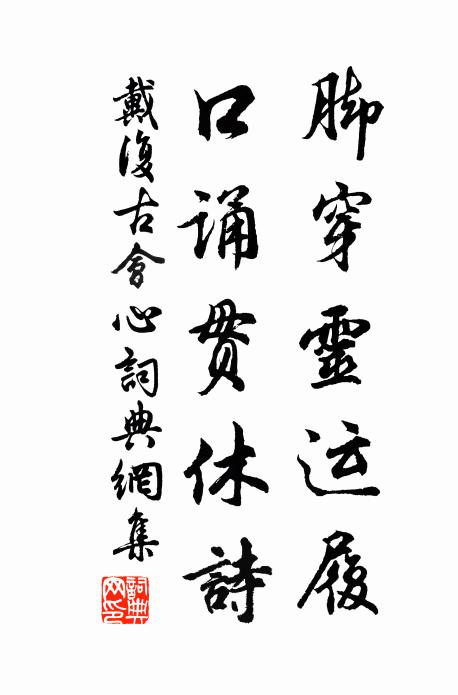 脚穿靈运履
口诵贯休詩
戴復古會心詞典網集
詞典网印